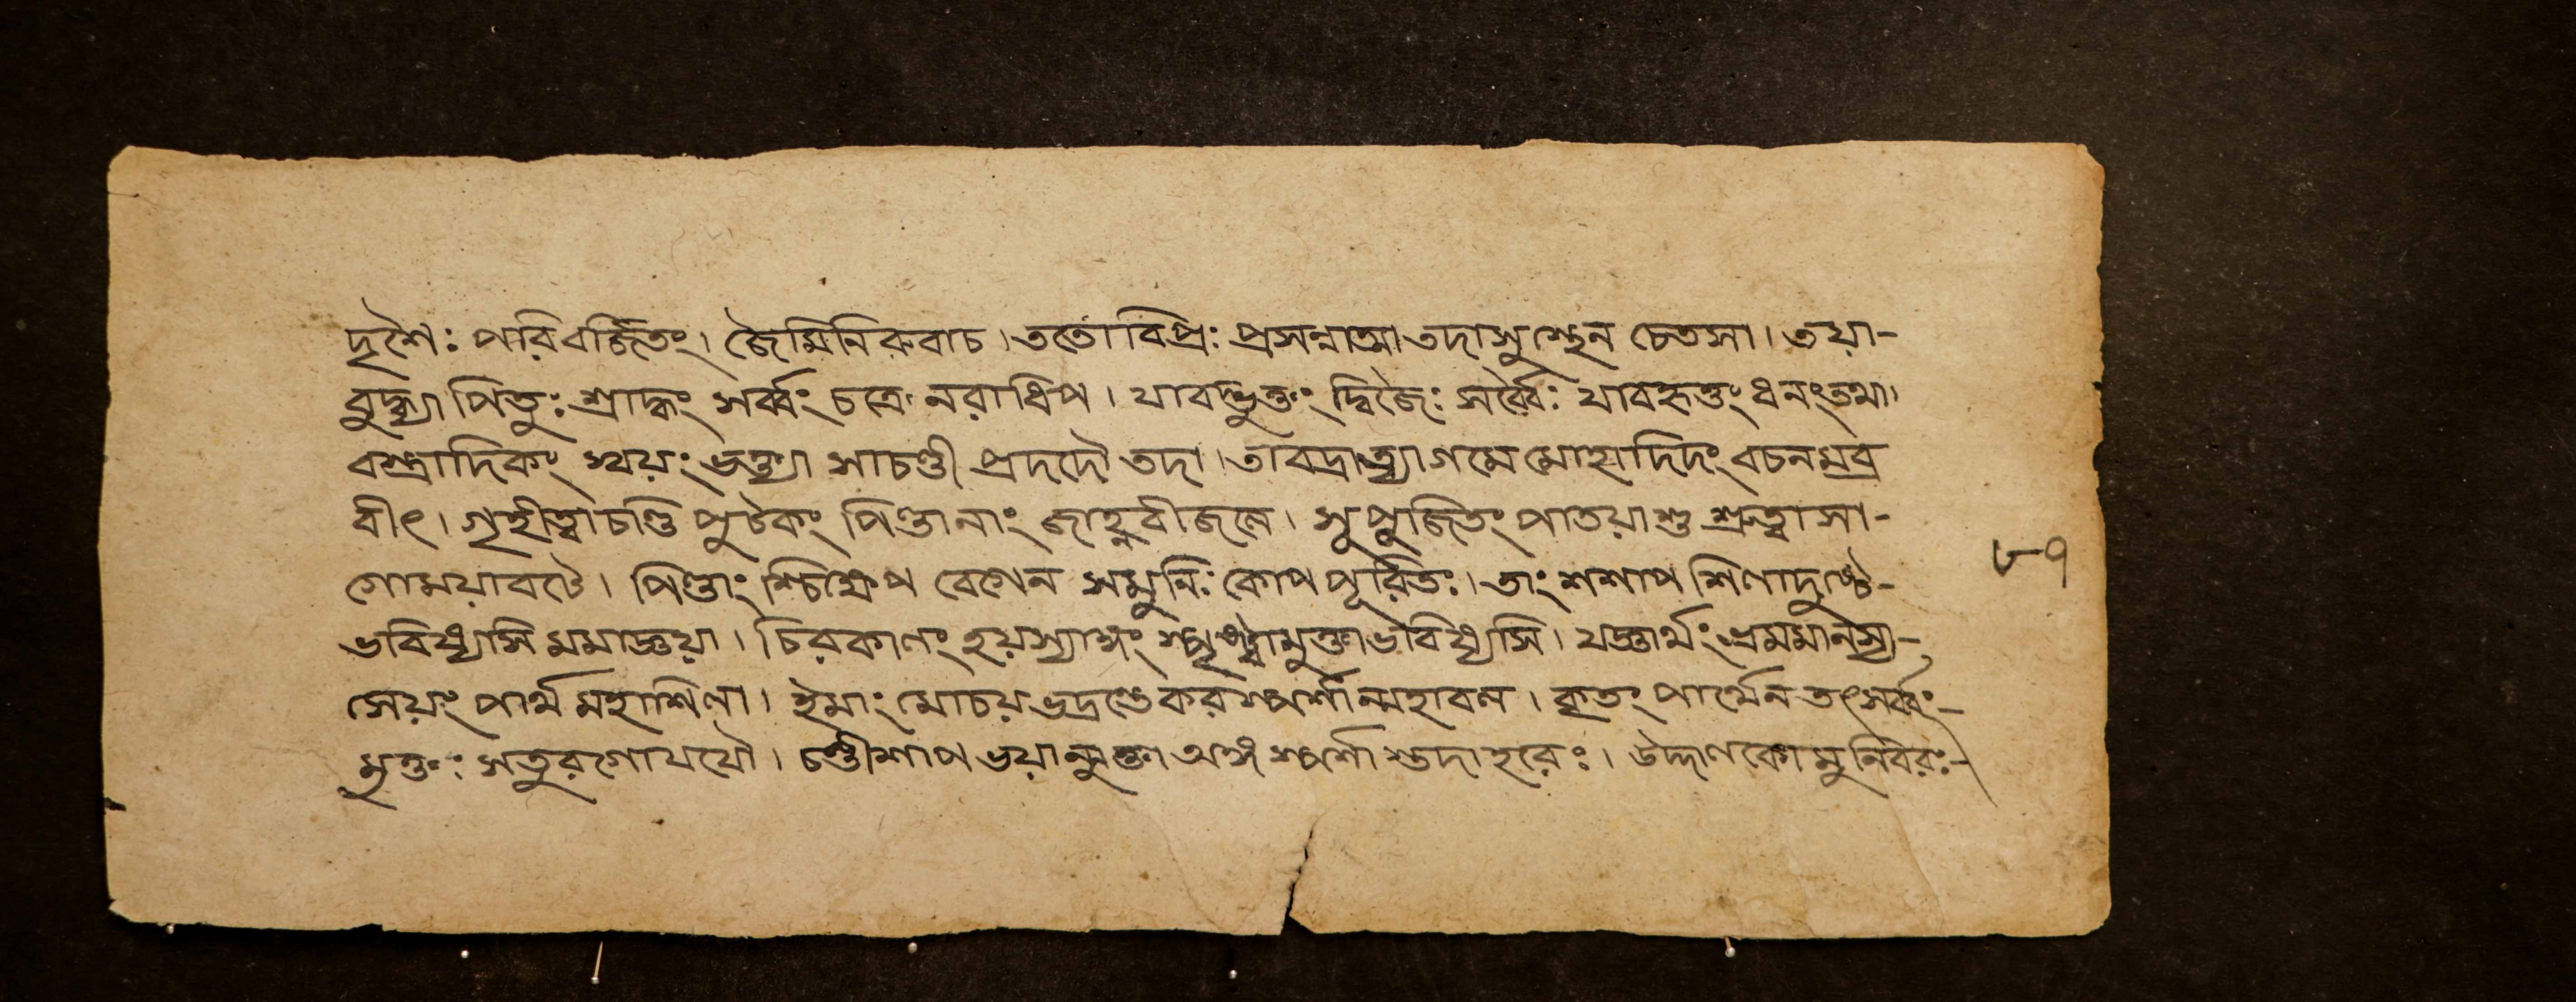 দৃশৈঃ পরিবর্জিতং। জৈমিনিরুবাচ। ততোবিপ্রঃ প্রসন্নাত্মা তদাসুস্থেন চেতসা। তয়া-
বুদ্ধ্যা পিতুঃ শ্রাদ্ধং সর্ব্বং চক্রে নরাধিপ। যাবদ্ভুক্তং দ্বিজৈঃ সর্ব্বৈঃ যাবদ্দত্তং ধনংতথা।
বস্ত্রাদিকং স্বয়ং ভক্ত্যা সাচণ্ডী প্রদদৌ তদা। তাবদ্রাত্র্যাগমে মোহাদিদং বচনমব্র
বীৎ। গৃহীত্বাচণ্ডি পুটকং পিণ্ডানাং জাহ্নবীজলে। সুপুজিতং পাতয়াশু শ্রুত্বাসা-
গোময়াবটে। পিণ্ডাংশ্চিক্ষেপ বেগেন সমুনিঃ কোপপূরিতঃ। তাং শশাপ শিলাদুষ্টে-
ভবিষ্যসি মমাজ্ঞয়া। চিরকালং হয়স্যাঙ্গং স্পৃষ্ট্বামুক্তাভবিষ্যসি। যজ্ঞার্থং ভ্রমমানস্য-
সেয়ং পার্থ মহাশিলা। ইমাং মোচয় ভদ্রন্তেকরস্পর্শান্মহাবল। কৃতং পার্থেন তৎসর্ব্বং-
মুক্তঃ সতুরগোযযৌ। চণ্ডীশাপ ভয়ান্মুক্তা অঙ্গস্পর্শাত্তদাহরেঃ। উদ্দালকোমুনিবরঃ-
৮৭